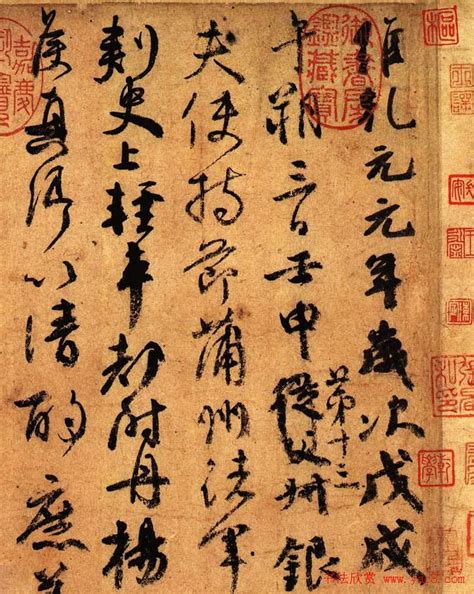 維乾元元年歲次戊戌
午朔三日壬申第十三從父叔銀
夫使持節蒲州諸軍
刺史上輕車都尉丹楊
侯真卿以清酌庶
御書房鑑藏寶
嘉慶
书法欣赏